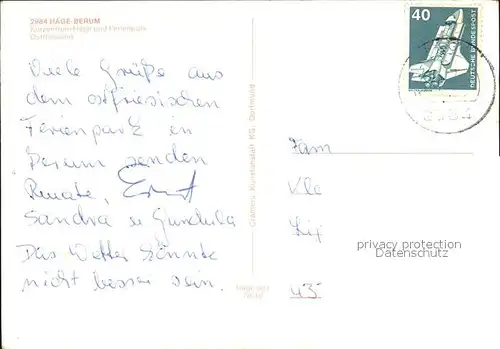 2984 HAGE-BERUM
Kurzentrum Hage und Ferienpark
Ostfriesland
Viele Grüße aus
dem ostfriesischen
Ferienpark in
Berum senden
Renate, Ernst
Sandra u Gundula
Das Wetter könnte
nicht besser sein.
Cramers Kunstanstalt KG, Dortmund
40
DEUTSCHE BUNDESPOST
Fam
Kle
Lix
43
privacy protection
Datenschutz